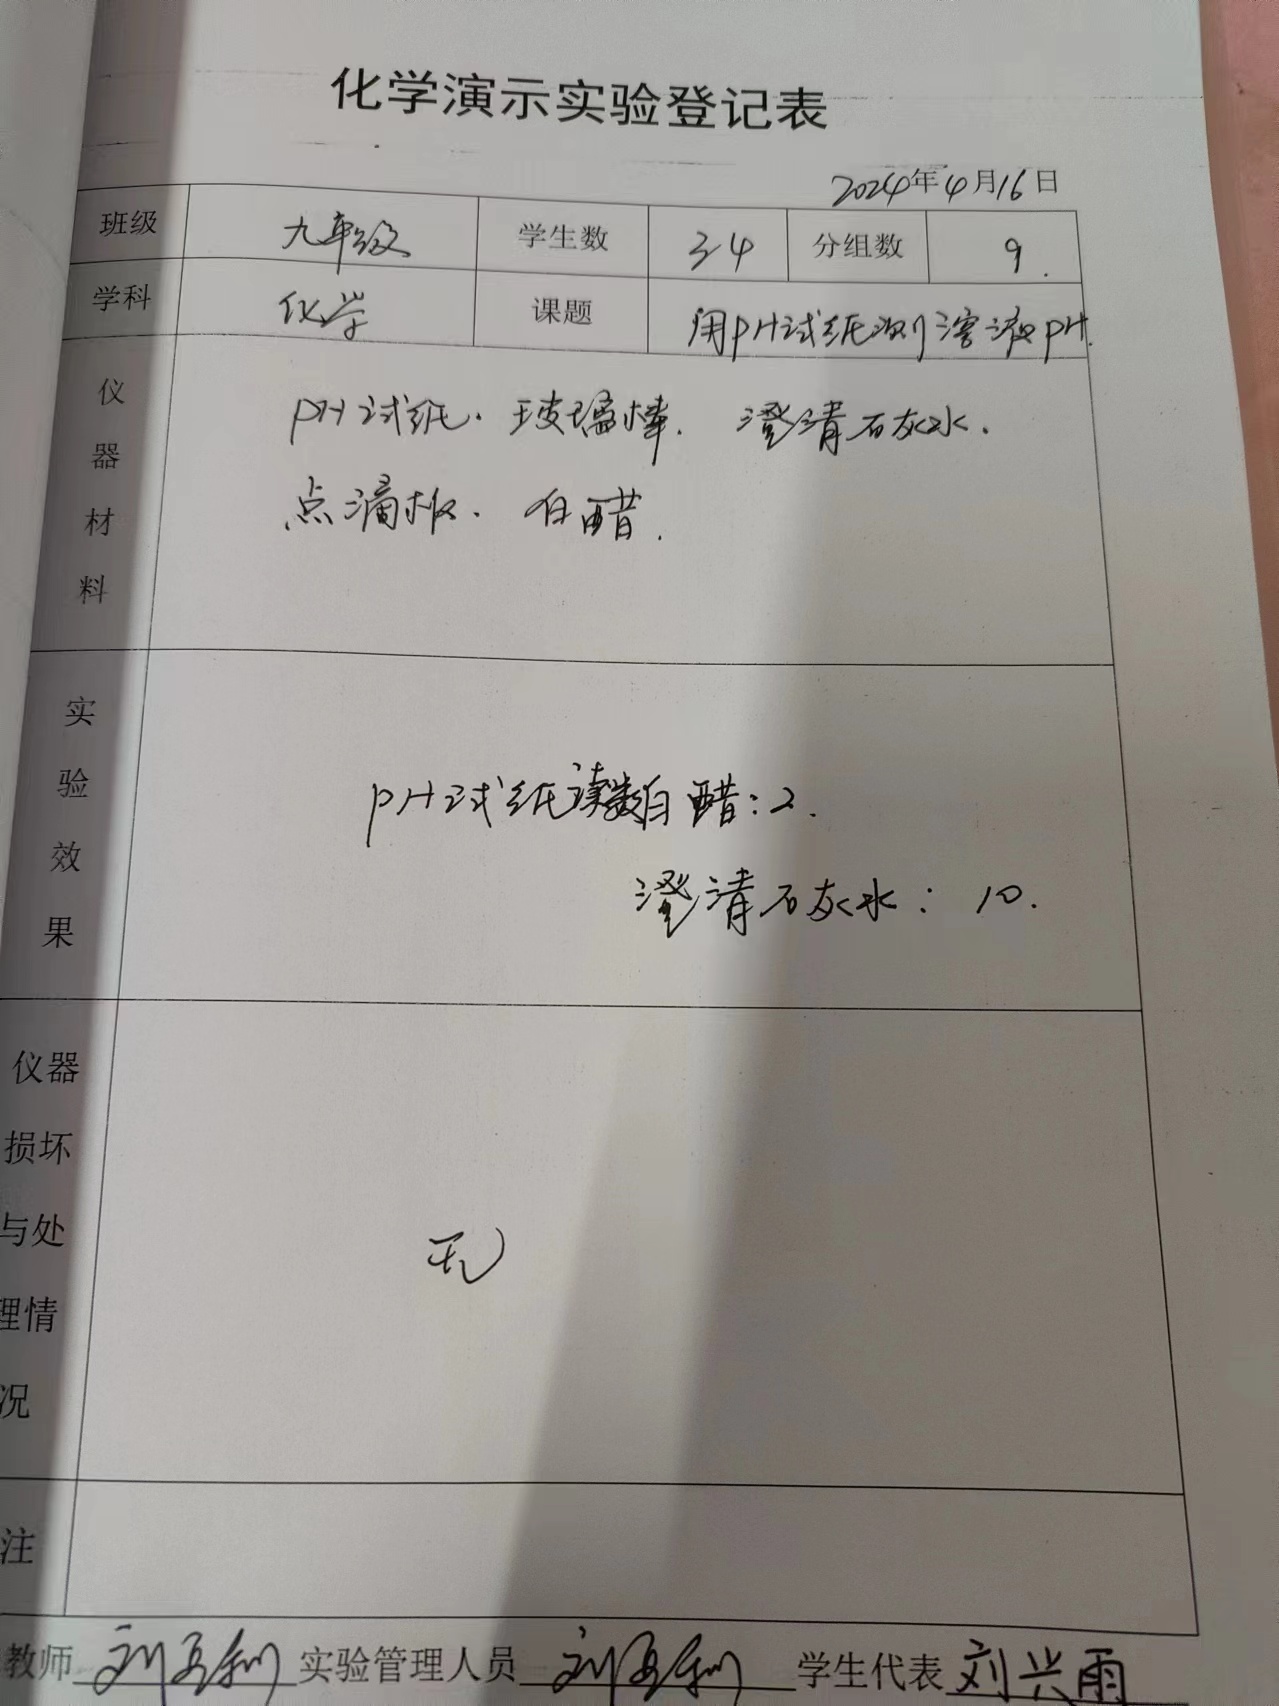 化学演示实验登记表
2024年4月16日
班级 九年级 学生数 34 分组数 9.
学科 化学 课题 用pH试纸测溶液pH.
仪器材料
pH试纸. 玻璃棒. 澄清石灰水.
点滴板. 白醋.
实验效果
pH试纸读数白醋:2.
澄清石灰水: 10.
仪器损坏与处理情况
无
注
教师 刘 实验管理人员 刘 学生代表 刘兴雨